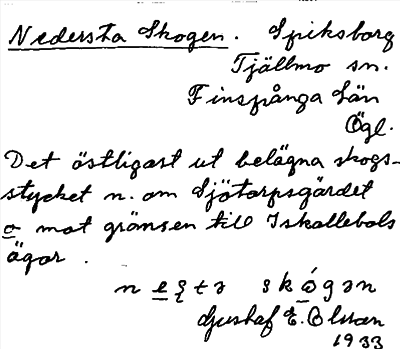 Nedersta Skogen. Spiksborg
Tjällmo sn.
Finspånga Län
Ögl.
Det östligast ut belägna skogs-
stycket n. om Sjötorpsgärdet
o mot gränsen till Iskallebols
ägor.
Gustaf E. Olsson
1933